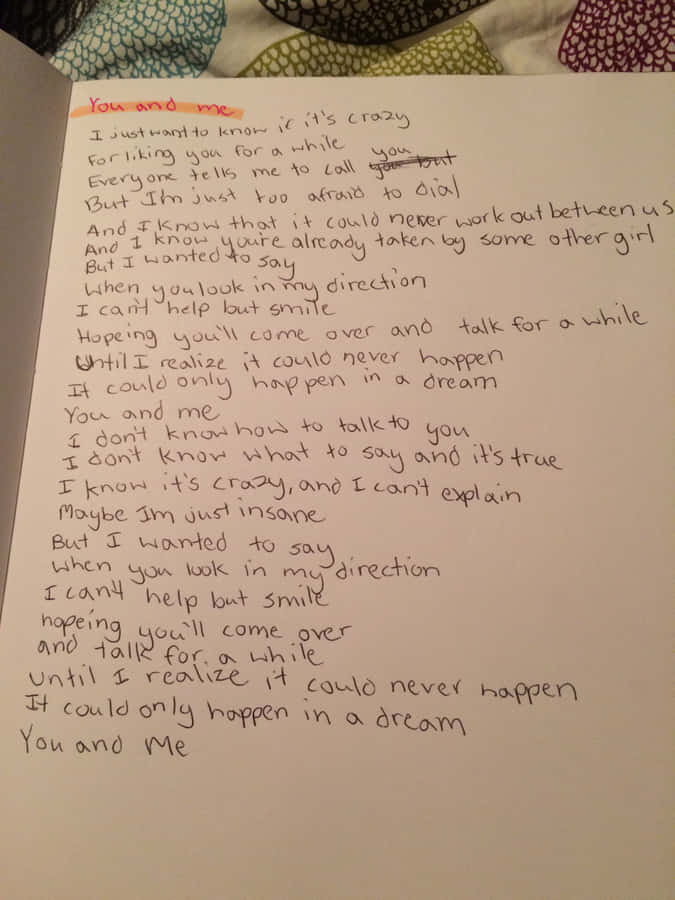 You and me
I just want to know if it's crazy
For liking you for a while
Everyone tells me to call you
But I'm just too afraid to dial
And I know that it could never work out between us
And I know you're already taken by some other girl
But I wanted to say
When you look in my direction
I can't help but smile
Hopeing you'll come over and talk for a while
Until I realize it could never happen
It could only happen in a dream
You and me
I don't know how to talk to you
I don't know what to say and it's true
I know it's crazy, and I can't explain
Maybe Im just insane
But I wanted to say
When you look in my direction
I can't help but smile
hopeing you'll come over
and talk for a while
until I realize it could never happen
It could only happen in a dream
You and Me